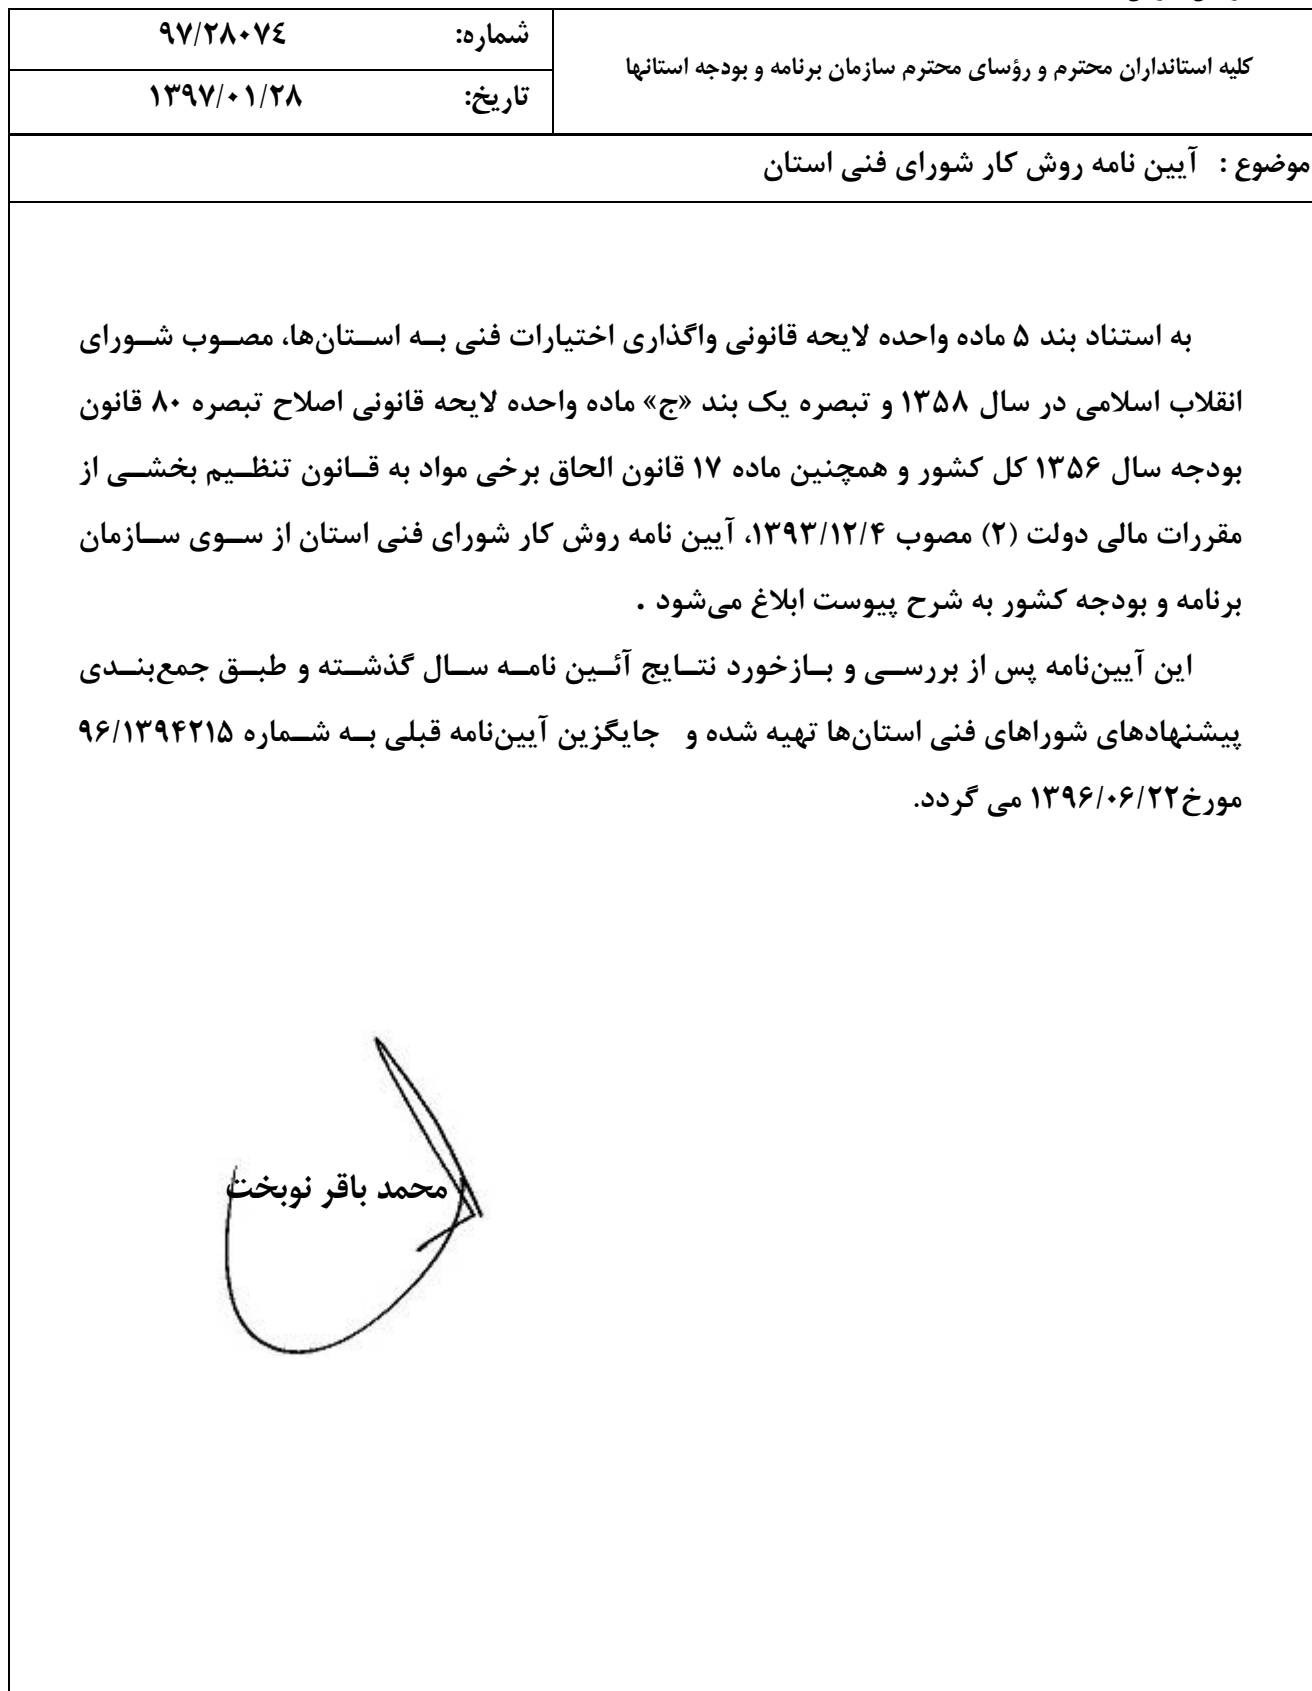 کلیه استانداران محترم و رؤسای محترم سازمان برنامه و بودجه استانها
شماره: ۹۷/۲۸۰۷٤
تاریخ: ۱۳۹۷/۰۱/۲۸
موضوع : آیین نامه روش کار شورای فنی استان
به استناد بند ۵ ماده واحده لایحه قانونی واگذاری اختیارات فنی بـه اسـتان‌ها، مصـوب شـورای
انقلاب اسلامی در سال ۱۳۵۸ و تبصره یک بند «ج» ماده واحده لایحه قانونی اصلاح تبصره ۸۰ قانون
بودجه سال ۱۳۵۶ کل کشور و همچنین ماده ۱۷ قانون الحاق برخی مواد به قـانون تنظـیم بخشـی از
مقررات مالی دولت (۲) مصوب ۱۳۹۳/۱۲/۴، آیین نامه روش کار شورای فنی استان از سـوی سـازمان
برنامه و بودجه کشور به شرح پیوست ابلاغ می‌شود .
این آیین‌نامه پس از بررسـی و بـازخورد نتـایج آئـین نامـه سـال گذشـته و طبـق جمع‌بنـدی
پیشنهادهای شوراهای فنی استان‌ها تهیه شده و جایگزین آیین‌نامه قبلی بـه شـماره ۹۶/۱۳۹۴۲۱۵
مورخ۱۳۹۶/۰۶/۲۲ می گردد.
محمد باقر نوبخت